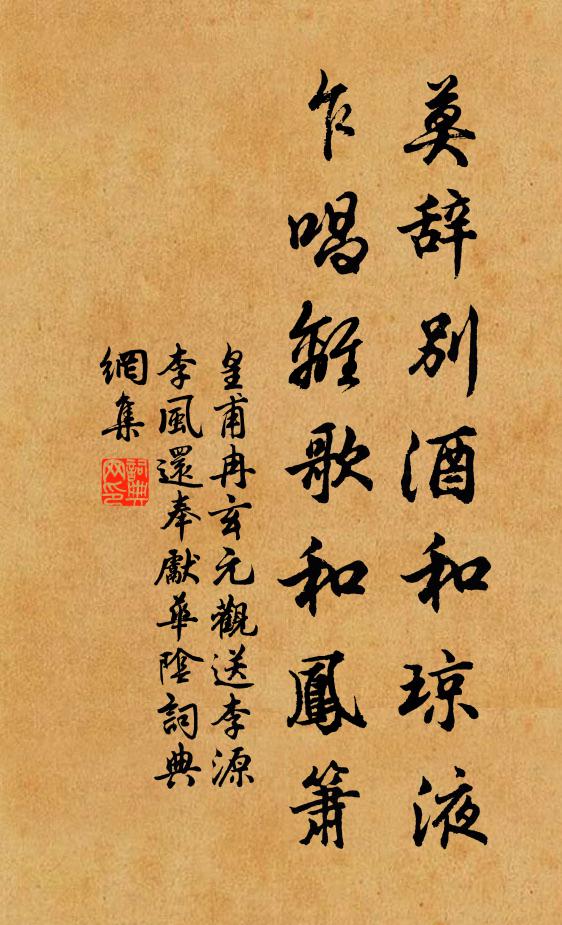 莫辞別酒和琼液
乍唱離歌和鳳簫
皇甫冉玄元觀送李源
李風還奉獻華陰詞典
網集
詞典網印